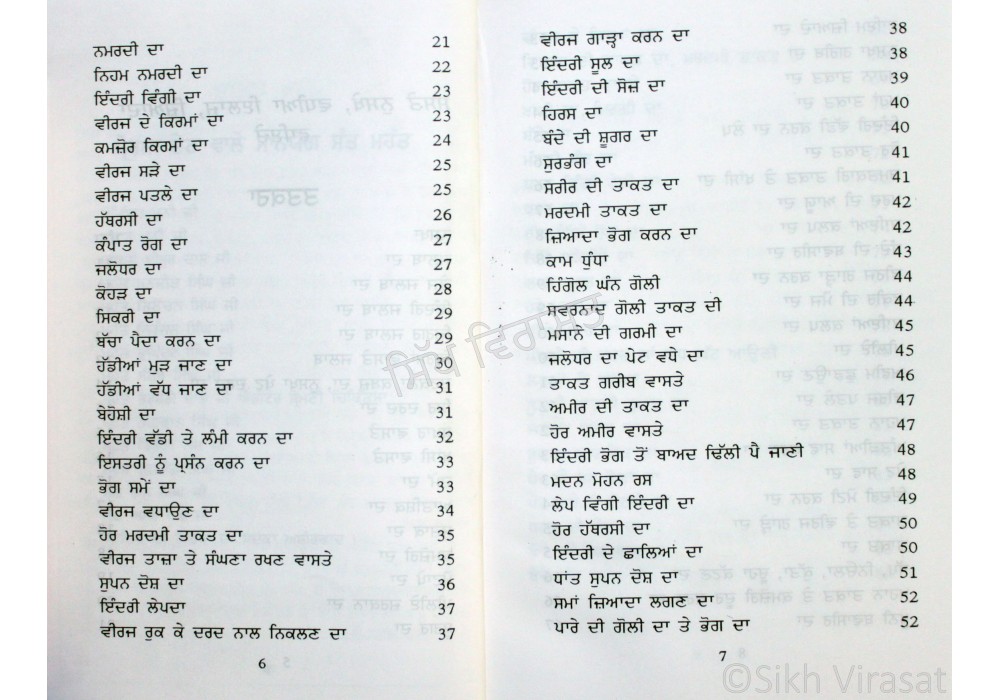 ਨਮਰਦੀ ਦਾ 21
ਨਿਹਮ ਨਮਰਦੀ ਦਾ 22
ਇੰਦਰੀ ਵਿੰਗੀ ਦਾ 23
ਵੀਰਜ ਦੇ ਕਿਰਮਾਂ ਦਾ 23
ਕਮਜ਼ੋਰ ਕਿਰਮਾਂ ਦਾ 24
ਵੀਰਜ ਸੜੇ ਦਾ 25
ਵੀਰਜ ਪਤਲੇ ਦਾ 25
ਹੱਥਰਸੀ ਦਾ 26
ਕੰਪਾਤ ਰੋਗ ਦਾ 27
ਜਲੋਧਰ ਦਾ 27
ਕੋਹੜ ਦਾ 28
ਸਿਕਰੀ ਦਾ 29
ਬੱਚਾ ਪੈਦਾ ਕਰਨ ਦਾ 29
ਹੱਡੀਆਂ ਮੁੜ ਜਾਣ ਦਾ 30
ਹੱਡੀਆਂ ਵੱਧ ਜਾਣ ਦਾ 31
ਬੇਹੋਸ਼ੀ ਦਾ 31
ਇੰਦਰੀ ਵੱਡੀ ਤੇ ਲੰਮੀ ਕਰਨ ਦਾ 32
ਇਸਤਰੀ ਨੂੰ ਪ੍ਰਸੰਨ ਕਰਨ ਦਾ 33
ਭੋਗ ਸਮੇਂ ਦਾ 33
ਵੀਰਜ ਵਧਾਉਣ ਦਾ 34
ਹੋਰ ਮਰਦਮੀ ਤਾਕਤ ਦਾ 35
ਵੀਰਜ ਤਾਜ਼ਾ ਤੇ ਸੰਘਣਾ ਰਖਣ ਵਾਸਤੇ 35
ਸੁਪਨ ਦੋਸ਼ ਦਾ 36
ਇੰਦਰੀ ਲੇਪਦਾ 37
ਵੀਰਜ ਰੁਕ ਕੇ ਦਰਦ ਨਾਲ ਨਿਕਲਣ ਦਾ 37
6
ਵੀਰਜ ਗਾੜ੍ਹਾ ਕਰਨ ਦਾ 38
ਇੰਦਰੀ ਸੂਲ ਦਾ 38
ਇੰਦਰੀ ਦੀ ਸੋਜ਼ ਦਾ 39
ਹਿਰਸ ਦਾ 40
ਬੰਦੇ ਦੀ ਸ਼ੂਗਰ ਦਾ 40
ਸੁਰਭੰਗ ਦਾ 41
ਸਰੀਰ ਦੀ ਤਾਕਤ ਦਾ 41
ਮਰਦਮੀ ਤਾਕਤ ਦਾ 42
ਜ਼ਿਆਦਾ ਭੋਗ ਕਰਨ ਦਾ 42
ਕਾਮ ਧੰਧਾ 43
ਹਿੰਗੋਲ ਘੰਨ ਗੋਲੀ 44
ਸਵਰਨਾਦ ਗੋਲੀ ਤਾਕਤ ਦੀ 44
ਮਸਾਨੇ ਦੀ ਗਰਮੀ ਦਾ 45
ਜਲੋਧਰ ਦਾ ਪੇਟ ਵਧੇ ਦਾ 45
ਤਾਕਤ ਗਰੀਬ ਵਾਸਤੇ 46
ਅਮੀਰ ਦੀ ਤਾਕਤ ਦਾ 47
ਹੋਰ ਅਮੀਰ ਵਾਸਤੇ 47
ਇੰਦਰੀ ਭੋਗ ਤੋਂ ਬਾਅਦ ਢਿੱਲੀ ਪੈ ਜਾਣੀ 48
ਮਦਨ ਮੋਹਨ ਰਸ 48
ਲੇਪ ਵਿੰਗੀ ਇੰਦਰੀ ਦਾ 49
ਹੋਰ ਹੱਥਰਸੀ ਦਾ 50
ਇੰਦਰੀ ਦੇ ਛਾਲਿਆਂ ਦਾ 50
ਧਾਂਤ ਸੁਪਨ ਦੋਸ਼ ਦਾ 51
ਸਮਾਂ ਜ਼ਿਆਦਾ ਲਗਣ ਦਾ 52
ਪਾਰੇ ਦੀ ਗੋਲੀ ਦਾ ਤੇ ਭੋਗ ਦਾ 52
7
ਸਿੱਖ ਵਿਰਾਸਤ
©Sikh Virasat